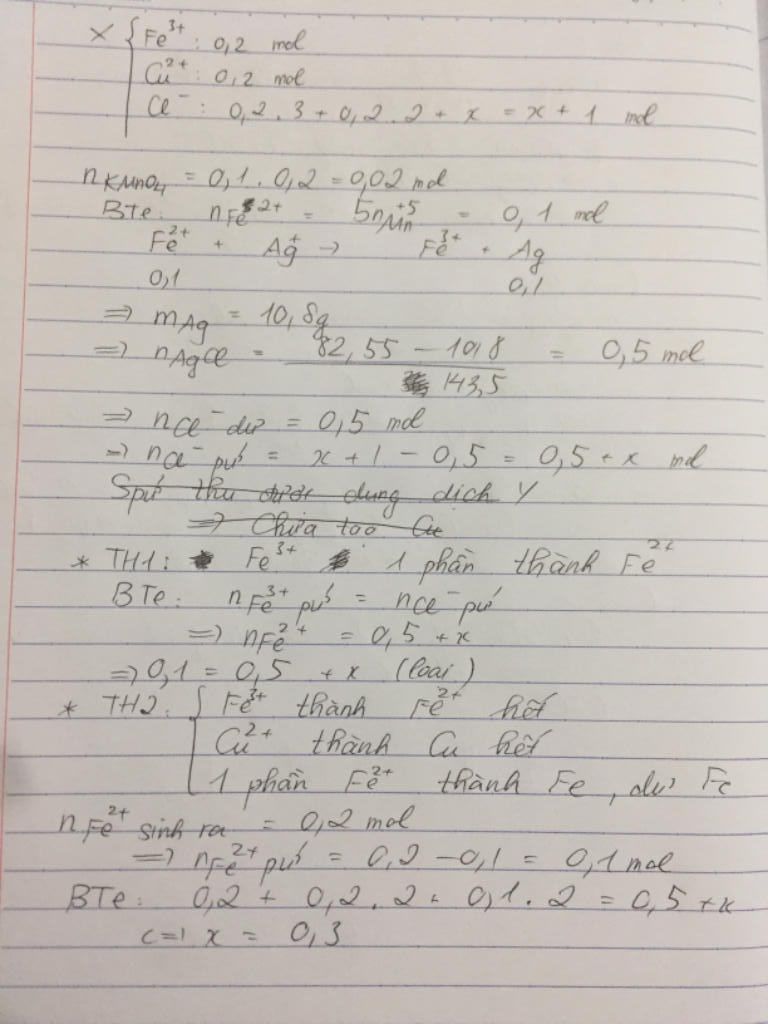 X { Fe³⁺ : 0,2 mol
Cu²⁺ : 0,2 mol
Cl⁻ : 0,2 . 3 + 0,2 . 2 + x = x + 1 mol
nKMnO₄ = 0,1 . 0,2 = 0,02 mol
BTe: nFe²⁺ = 5nMn⁺⁵ = 0,1 mol
Fe²⁺ + Ag⁺ → Fe³⁺ + Ag
0,1 0,1
=> mAg = 10,8g
=> nAgCl = (82,55 - 10,8) / 143,5 = 0,5 mol
=> nCl⁻ dư = 0,5 mol
=> nCl⁻ pứ = x + 1 - 0,5 = 0,5 + x mol
Spứ thu được dung dịch Y
=> Chưa tạo Cu
* TH1: Fe³⁺ 1 phần thành Fe²⁺
BTe: nFe³⁺ pứ = nCl⁻ pứ
=> nFe²⁺ = 0,5 + x
=> 0,1 = 0,5 + x (loại)
* TH2: { Fe³⁺ thành Fe²⁺ hết
Cu²⁺ thành Cu hết
1 phần Fe²⁺ thành Fe, dư Fe
nFe²⁺ sinh ra = 0,2 mol
=> nFe²⁺ pứ = 0,2 - 0,1 = 0,1 mol
BTe: 0,2 + 0,2 . 2 + 0,1 . 2 = 0,5 + x
<=> x = 0,3